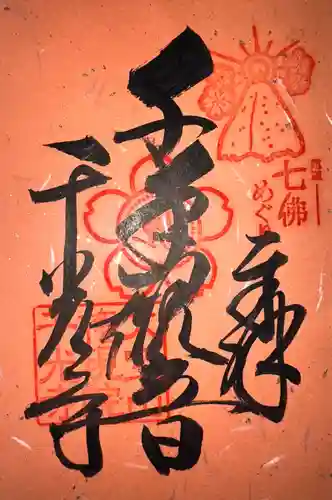 七佛
めぐり
奉拝
子安観音
千光寺